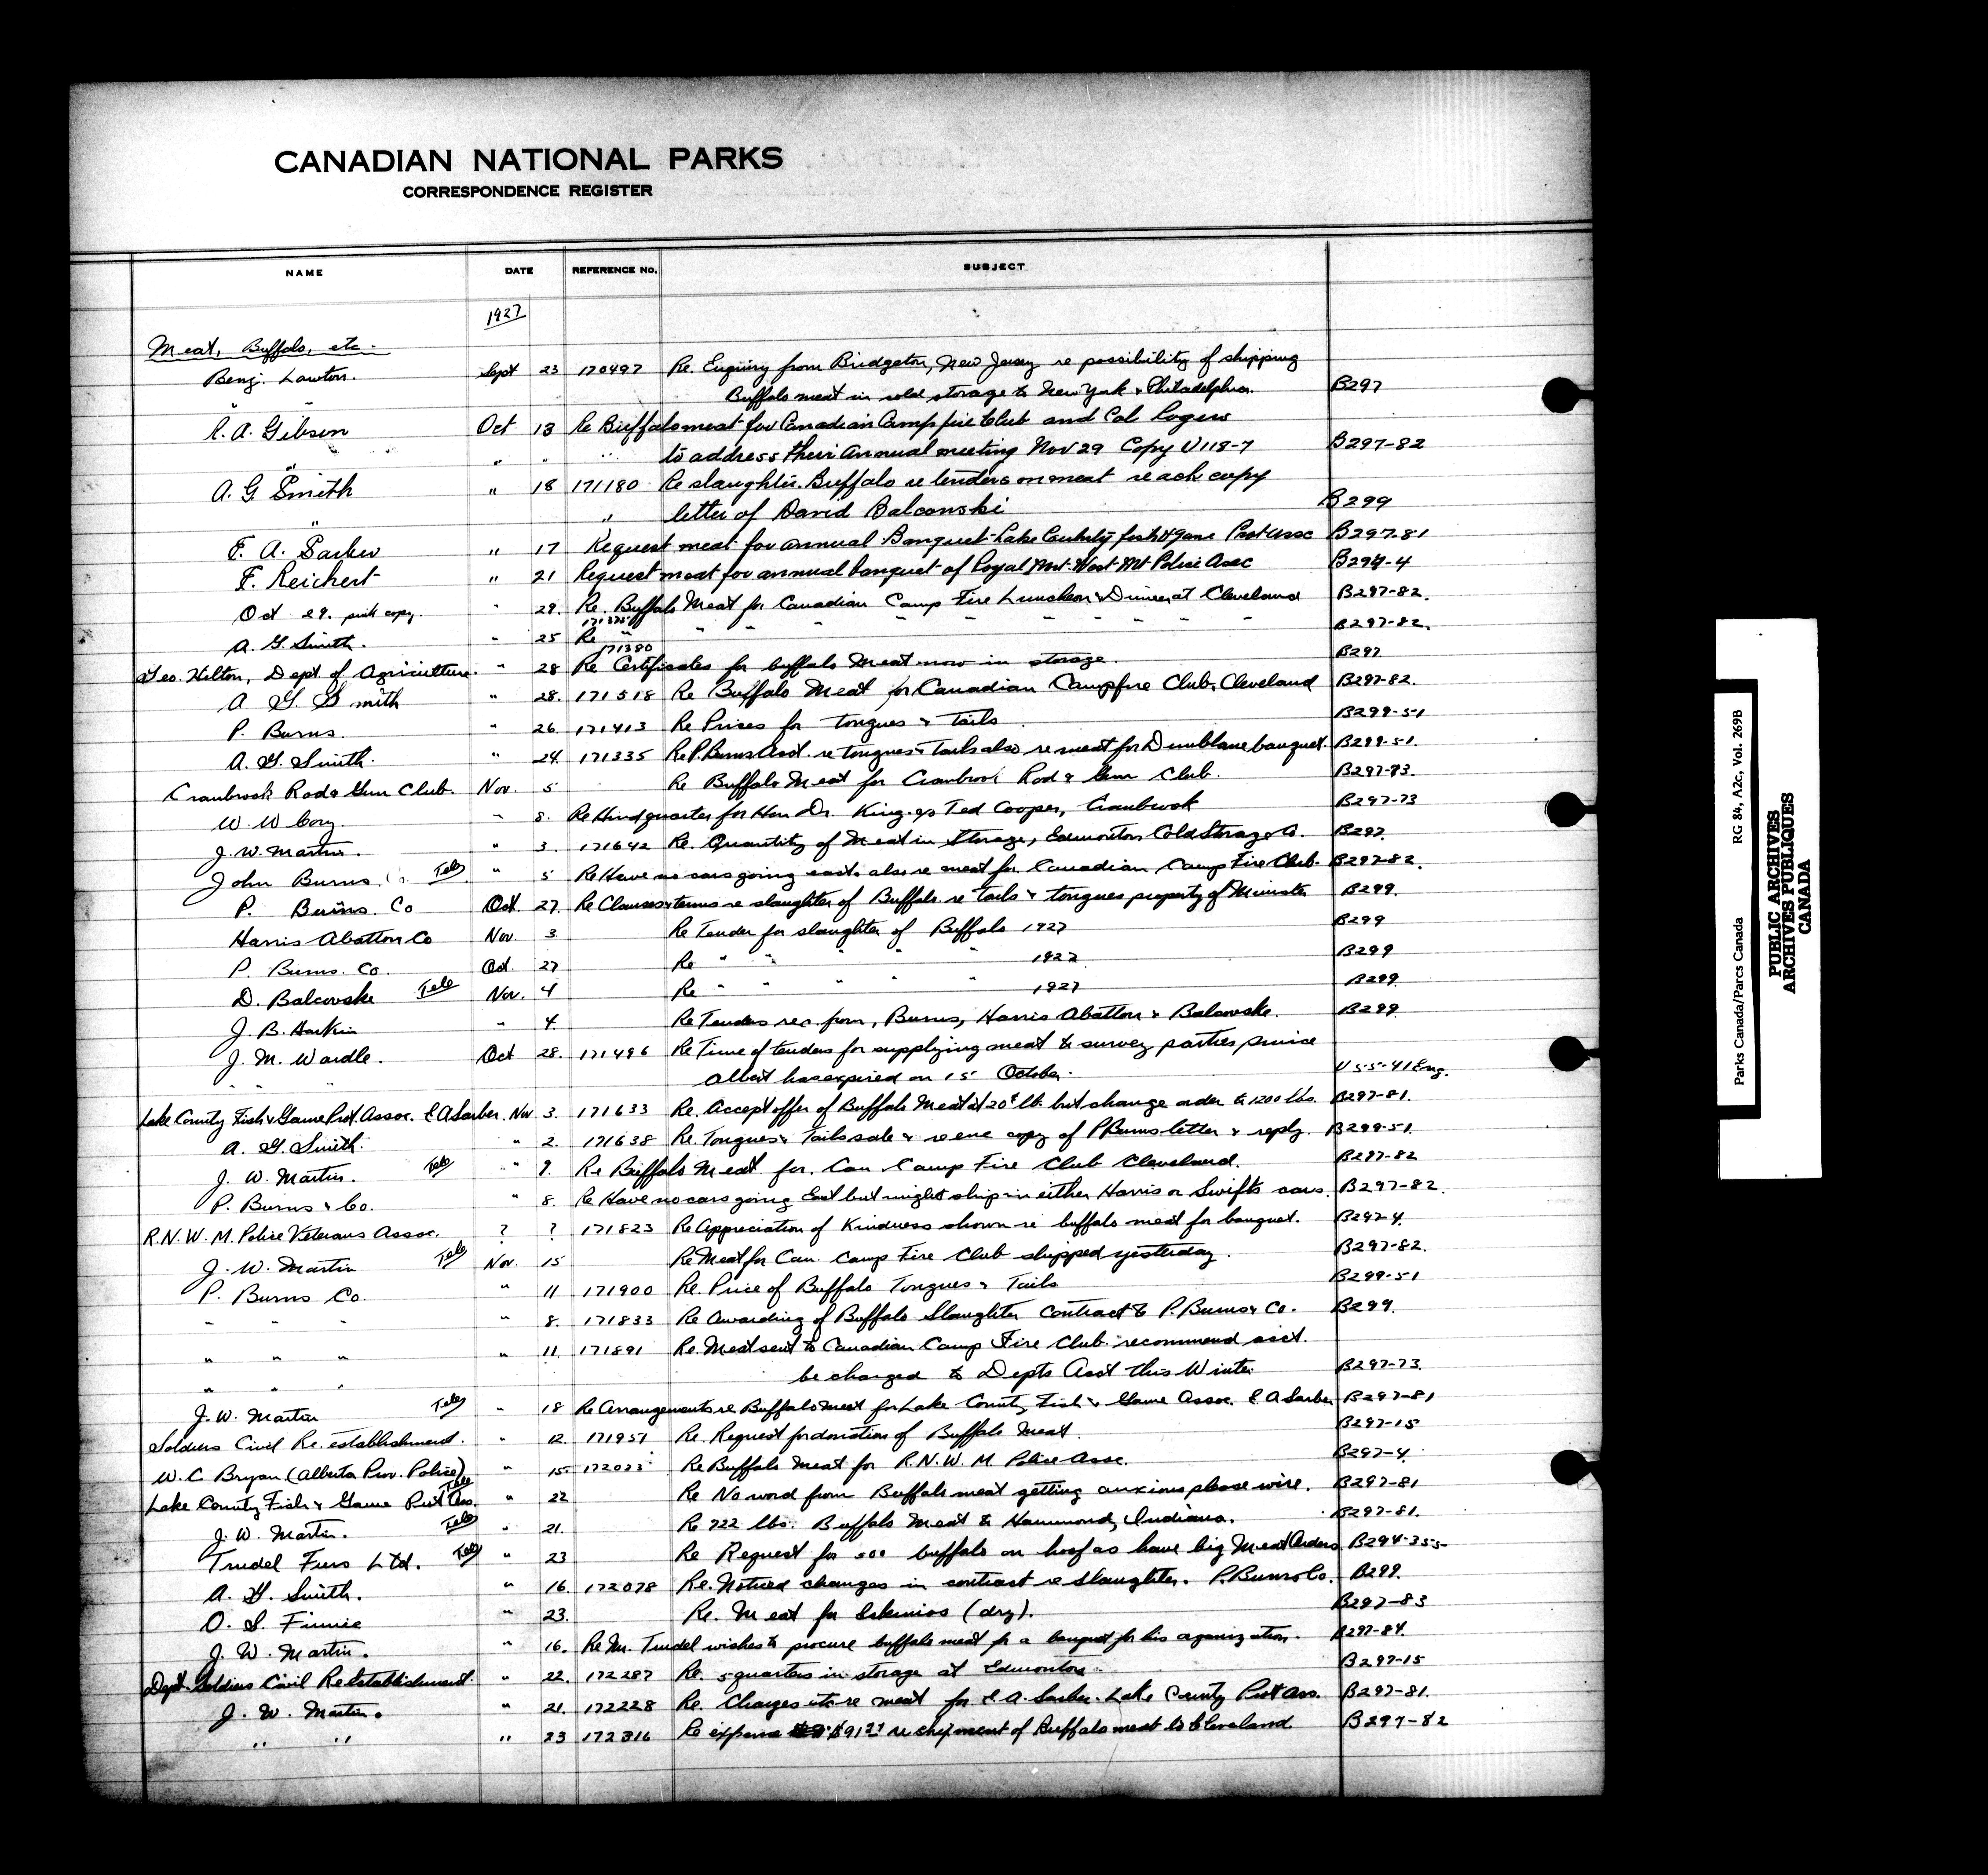 CANADIAN NATIONAL PARKS
CORRESPONDENCE REGISTER
NAME DATE REFERENCE No. SUBJECT
1927
Meat, Buffalo, etc.
Benj. Lawton. Sept 23 170497 Re. Enquiry from Bridgeton, New Jersey re possibility of shipping
" " Buffalo meat in cold storage to New York & Philadelphia. B297
R. A. Gibson Oct 13 Re Buffalo meat for Canadian Camp fire Club and Col Rogers
" " " to address their Annual meeting Nov 29 Copy U118-7 B297-82
A. G. Smith " 18 171180 Re slaughter Buffalo re tenders on meat re ack copy
" " letter of David Balconski B299
E. A. Sarber " 17 Request meat for annual Banquet Lake County fish & game Prot Assc B297-81
F. Reichert " 21 Request meat for annual banquet of Royal Nort-West Mt Police Assc B297-4
Oct 29. pink copy. " 29. Re. Buffalo Meat for Canadian Camp Fire Luncheon & Dinner at Cleveland B297-82.
A. G. Smith. " 25 171375 Re " " " " " " " " " " B297-82.
Geo. Hilton, Dept. of Agriculture. " 28 171380 Re Certificates for buffalo Meat now in storage. B297
A G. Smith " 28. 171518 Re Buffalo Meat for Canadian Campfire Club, Cleveland B297-82.
P. Burns. " 26 171413 Re Prices for tongues & Tails B299-51
A. G. Smith. " 24. 171335 Re P. Burns Acct. re tongues & Tails also re meat for Dunblane banquet. B299-51.
Cranbrook Rod & Gun Club. Nov. 5 Re Buffalo Meat for Cranbrook Rod & Gun Club. B297-73.
W. W Cory. " 8. Re Hind quarter for Hon Dr. King. c/o Ted Cooper, Cranbrook B297-73
J. W. Martin. " 3. 171642 Re. Quantity of Meat in Storage, Edmonton Cold Storage Co. B297.
John Burns. Tele " 5 Re Have no cars going east. also re meat for Canadian Camp Fire Club. B297-82.
P. Burns. Co Oct. 27. Re Clauses & terms re slaughter of Buffalo re tails & tongues property of Minister B299.
Harris Abattoir Co Nov. 3. Re Tender for slaughter of Buffalo 1927 B299
P. Burns. Co. Oct. 27 Re " " " " " 1927. B299
D. Balcovske Tele Nov. 4 Re " " " " " 1927 B299
J. B. Harkin " 4. Re Tenders rec. from, Burns, Harris Abattoir & Balcovske. B299
J. M. Wardle. Oct 28. 171496 Re Time of tenders for supplying meat to survey parties Prince
" " Albert has expired on 15 October. U 5-5-41 Eng.
Lake County Fish & Game Prot. Assoc. E A Sarber. Nov 3. 171633 Re. Accept offer of Buffalo Meat at 20¢ lb. but change order to 1200 lbs. B297-81.
A. G. Smith. " 2. 171638 Re Tongues & Tails sale & re enc copy of P Burns letter & reply. B299-51.
J. W. Martin. Tele " 9. Re Buffalo Meat for. Can Camp Fire Club Cleveland. B297-82
P. Burns & Co. " 8. Re Have no cars going East but might ship in either Harris or Swifts cars. B297-82.
R. N. W. M. Police Veterans Assoc. ? ? 171823 Re Appreciation of Kindness shown re buffalo meat for banquet. B297-4.
J. W. Martin Tele Nov. 15 Re Meat for Can. Camp Fire Club shipped yesterday. B297-82.
P. Burns Co. " 11 171900 Re. Price of Buffalo Tongues & Tails B299-51
" " " " 8. 171833 Re Awarding of Buffalo Slaughter Contract to P. Burns & Co. B299.
" " " " 11. 171891 Re. Meat sent to Canadian Camp Fire Club. recommend acct.
" " " be charged to Depts Acct this Winter B297-73.
J. W. Martin Tele " 18 Re Arrangements re Buffalo Meat for Lake County Fish & Game Assoc. E A Sarber B297-81
Soldiers Civil Re. establishment. " 12. 171957 Re. Request for donation of Buffalo Meat. B297-15
W. C. Bryan (Alberta Prov. Police) " 15. 172023 Re Buffalo Meat for R.N.W.M. Police Assc. B297-4.
Lake County Fish & Game Prot Ass. Tele " 22 Re No word from Buffalo meat getting anxious please wire. B297-81
J. W. Martin. Tele " 21. Re 722 lbs. Buffalo Meat to Hammond, Indiana. B297-81.
Trudel Furs Ltd. Tele " 23 Re Request for 500 buffalo on hoof as have big Meat Orders B294-355
A. G. Smith. " 16. 172078 Re. Noticed changes in contract re Slaughter. P. Burns Co. B299.
O. S. Finnie " 23. Re. Meat for Eskimos (dry). B297-83
J. W. Martin. " 16. Re Mr. Trudel wishes to procure buffalo meat for a banquet for his organization. B297-84.
Dept. Soldiers Civil Reestablishment. " 22. 172287 Re. 5 quarters in storage at Edmonton. B297-15
J. W. Martin. " 21. 172228 Re. Charges etc re meat for E. A. Sarber. Lake County Prot Ass. B297-81.
" " " 23 172316 Re expense $91 re shipment of Buffalo meat to Cleveland B297-82
Parks Canada/Parcs Canada RG 84, A2c, Vol. 269B
PUBLIC ARCHIVES
ARCHIVES PUBLIQUES
CANADA